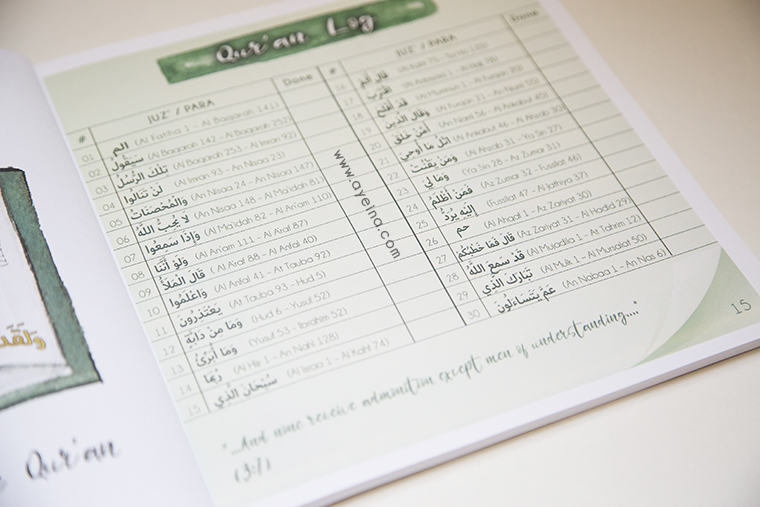 Qur'an Log
# JUZ' / PARA Done
01 الم (Al Fatiha 1 - Al Baqarah 141)
02 سَيَقُولُ (Al Baqarah 142 - Al Baqarah 252)
03 تِلْكَ الرُّسُلُ (Al Baqarah 253 - Al Imran 92)
04 لَنْ تَنَالُوا (Al Imran 93 - An Nisaa 23)
05 وَالْمُحْصَنَاتُ (An Nisaa 24 - An Nisaa 147)
06 لَا يُحِبُّ اللهُ (An Nisaa 148 - Al Ma'idah 81)
07 وَإِذَا سَمِعُوا (Al Ma'idah 82 - Al An'am 110)
08 وَلَوْ أَنَّنَا (Al An'am 111 - Al A'raf 87)
09 قَالَ الْمَلَأُ (Al A'raf 88 - Al Anfal 40)
10 وَاعْلَمُوا (Al Anfal 41 - At Tauba 92)
11 يَعْتَذِرُونَ (At Tauba 93 - Hud 5)
12 وَمَا مِنْ دَابَّةٍ (Hud 6 - Yusuf 52)
13 وَمَا أُبَرِّئُ (Yusuf 53 - Ibrahim 52)
14 رُبَمَا (Al Hijr 1 - An Nahl 128)
15 سُبْحَانَ الَّذِي (Al Israa 1 - Al Kahf 74)
www.ayeina.com
# JUZ' / PARA Done
16 قَالَ أَلَمْ
17 اقْتَرَبَ
18 قَدْ أَفْلَحَ
19 وَقَالَ الَّذِينَ
20 أَمَّنْ خَلَقَ
21 اتْلُ مَا أُوحِيَ
22 وَمَنْ يَقْنُتْ
23 وَمَا لِي (Ya Sin 28 - Az Zumar 31)
24 فَمَنْ أَظْلَمُ (Az Zumar 32 - Fussilat 46)
25 إِلَيْهِ يُرَدُّ (Fussilat 47 - Al Jathiya 37)
26 حم (Al Ahqaf 1 - Az Zariyat 30)
27 قَالَ فَمَا خَطْبُكُمْ (Az Zariyat 31 - Al Hadid 29)
28 قَدْ سَمِعَ اللهُ (Al Mujadila 1 - At Tahrim 12)
29 تَبَارَكَ الَّذِي (Al Mulk 1 - Al Mursalat 50)
30 عَمَّ يَتَسَاءَلُونَ (An Nabaa 1 - An Nas 6)
"...And none receive admonition except men of understanding...."
(3:7)
15
Qur'an